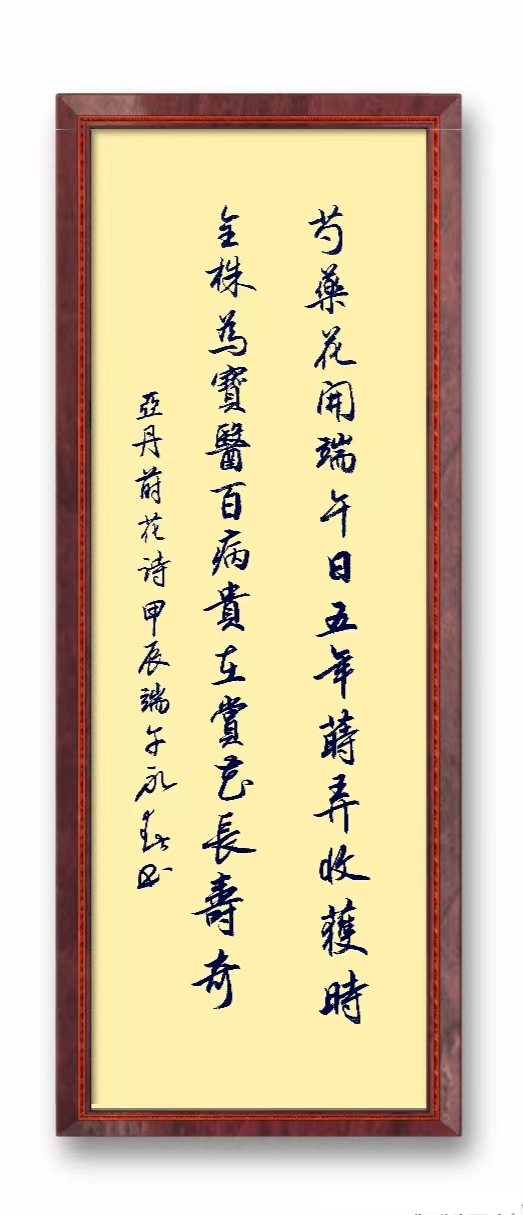 芍藥花開端午日五年蒔弄收獲時
全株為寶醫百病貴在賞花長壽奇
亞丹莳花诗甲辰端午永春书